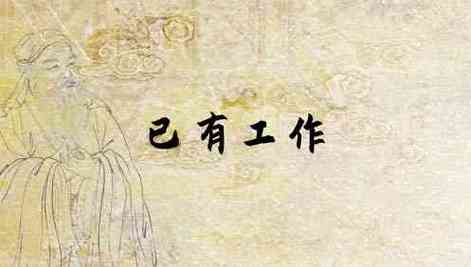 已有工作